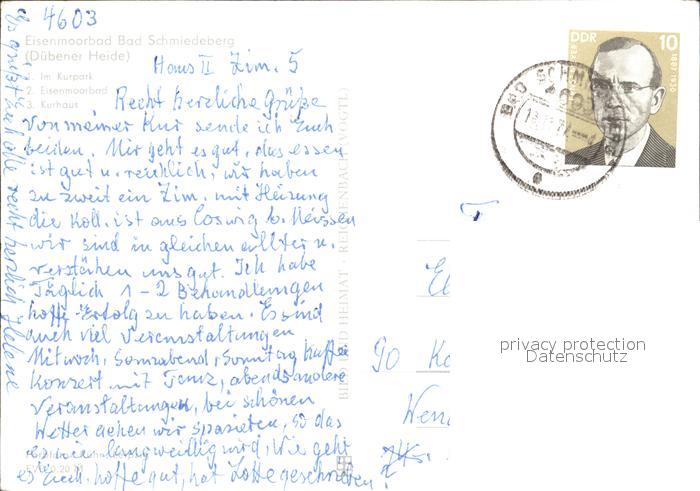 4603
Eisenmoorbad Bad Schmiedeberg
(Dübener Heide)
1. Im Kurpark
2. Eisenmoorbad
3. Kurhaus
Haus II Zim. 5
Recht herzliche Grüße
von meiner Kur sende ich Euch
beiden. Mir geht es gut, das essen
ist gut u. reichlich, wir haben
zu zweit ein Zim. mit Heizung
die Koll. ist aus Coswig b. Meissen
wir sind in gleichen Allter u.
verstehen uns gut. Ich habe
Täglich 1-2 Behandlungen
hoffe Erfolg zu haben. Es sind
auch viel Veranstaltungen
Mitwoch, Sonnabend, Sonntag Kaffee
Konzert mit Tanz, abends andere
Veranstaltungen, bei schönen
Wetter gehen wir spazieren, so das
es nie langweillig wird, Wie geht
es Euch, hoffe gut, hat Lotte geschrieben?
Es grüßt Euch alle recht herzlich Helene
BILD UND HEIMAT · REICHENBACH (VOGTL)
DDR 10
BAD SCHMIEDEBERG
90 
privacy protection
Datenschutz